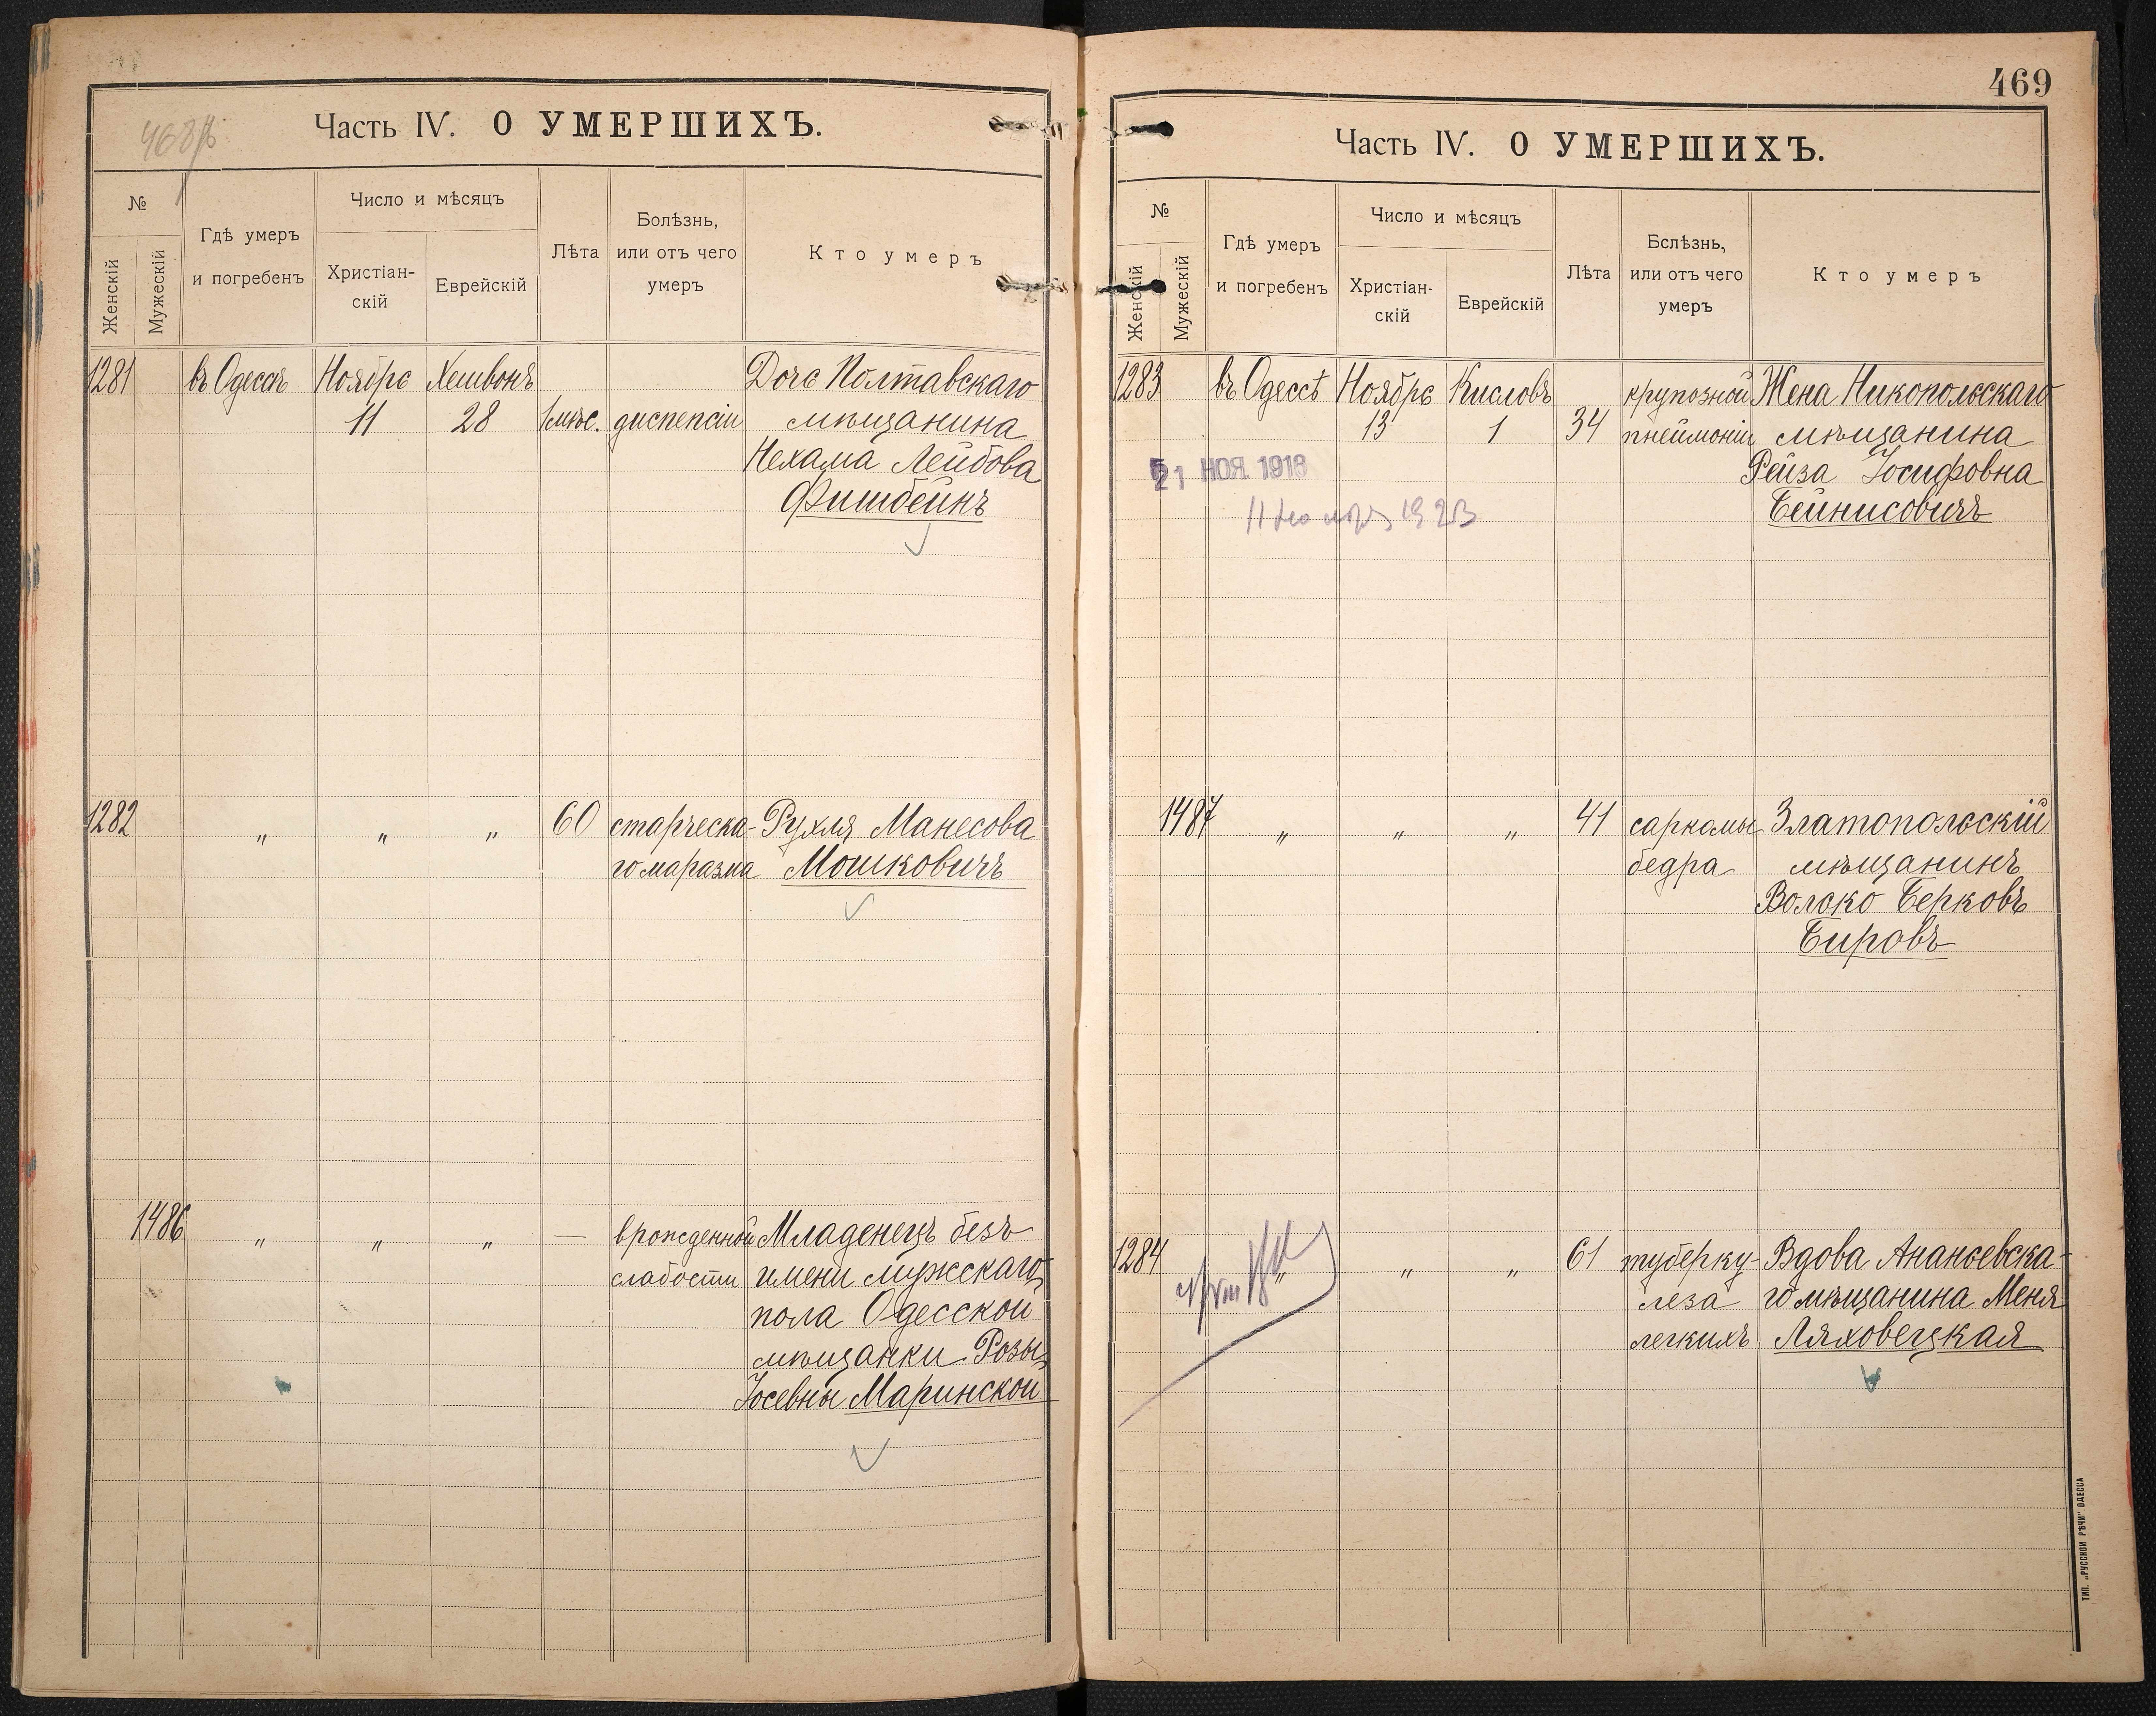 468
Часть IV. О УМЕРШИХЪ.
№
Женскій
Мужескій
Гдѣ умеръ
и погребенъ
Число и мѣсяцъ
Христіан-
скій
Еврейскій
Лѣта
Болѣзнь,
или отъ чего
умеръ
Кто умеръ
1281 въ Одессѣ Ноябрь Хешвонъ Дочь Полтавскаго
11 28 1 мѣс. диспепсіи мѣщанина
Нехама Лейбова
Фишбейнъ
1282 „ „ „ 60 старческа- Рухля Манесова
го маразма Мошковичъ
1486 „ „ „ — врожденной Младенецъ безъ
слабости имени мужскаго
пола Одесской
мѣщанки Розы
Іосевны Маринской
469
Часть IV. О УМЕРШИХЪ.
№
Женскій
Мужескій
Гдѣ умеръ
и погребенъ
Число и мѣсяцъ
Христіан-
скій
Еврейскій
Лѣта
Бслѣзнь,
или отъ чего
умеръ
Кто умеръ
1283 въ Одессѣ Ноябрь Кисловъ крупозной Жена Никопольскаго
13 1 34 пнеймоніи мѣщанина
Рейза Іосифовна
Бейнисовичъ
21 НОЯ 1918
11 1923
1487 „ „ „ 41 саркомы Златопольскій
бедра мѣщанинъ
Волько Берковъ
Бировъ
1284 „ „ „ 61 туберку- Вдова Ананьевска-
леза го мѣщанина Меня
легкихъ Ляховецкая
ТИП. „РУССКОЙ РѢЧИ" ОДЕССА